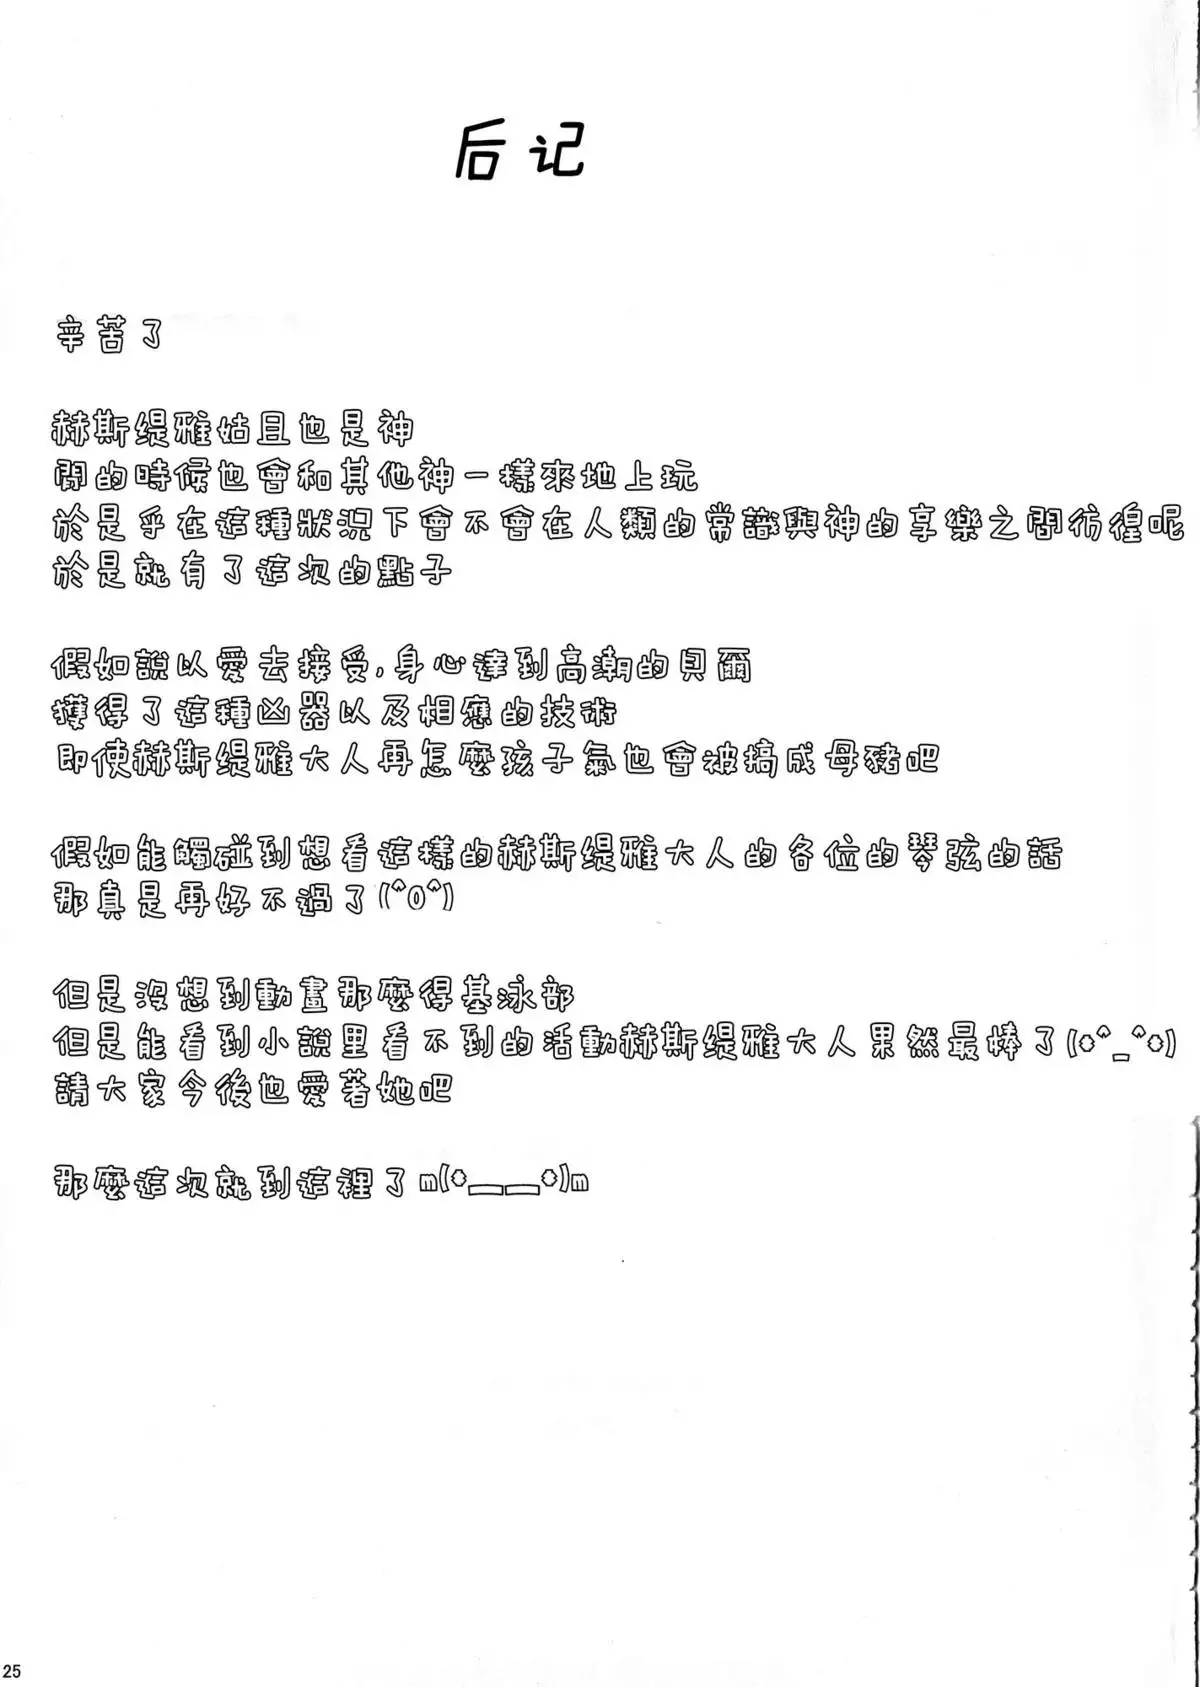 后记
辛苦了
赫斯缇雅姑且也是神
閒的時候也會和其他神一樣來地上玩
於是乎在這種狀況下會不會在人類的常識與神的享樂之間彷徨呢
於是就有了這次的點子
假如說以愛去接受,身心達到高潮的貝爾
獲得了這種凶器以及相應的技術
即使赫斯缇雅大人再怎麼孩子氣也會被搞成母豬吧
假如能觸碰到想看這樣的赫斯缇雅大人的各位的琴弦的話
那真是再好不過了(^0^)
但是沒想到動畫那麼得基泳部
但是能看到小說里看不到的活動赫斯缇雅大人果然最棒了(*^_^*)
請大家今後也愛著她吧
那麼這次就到這裡了m(*__*)m
25